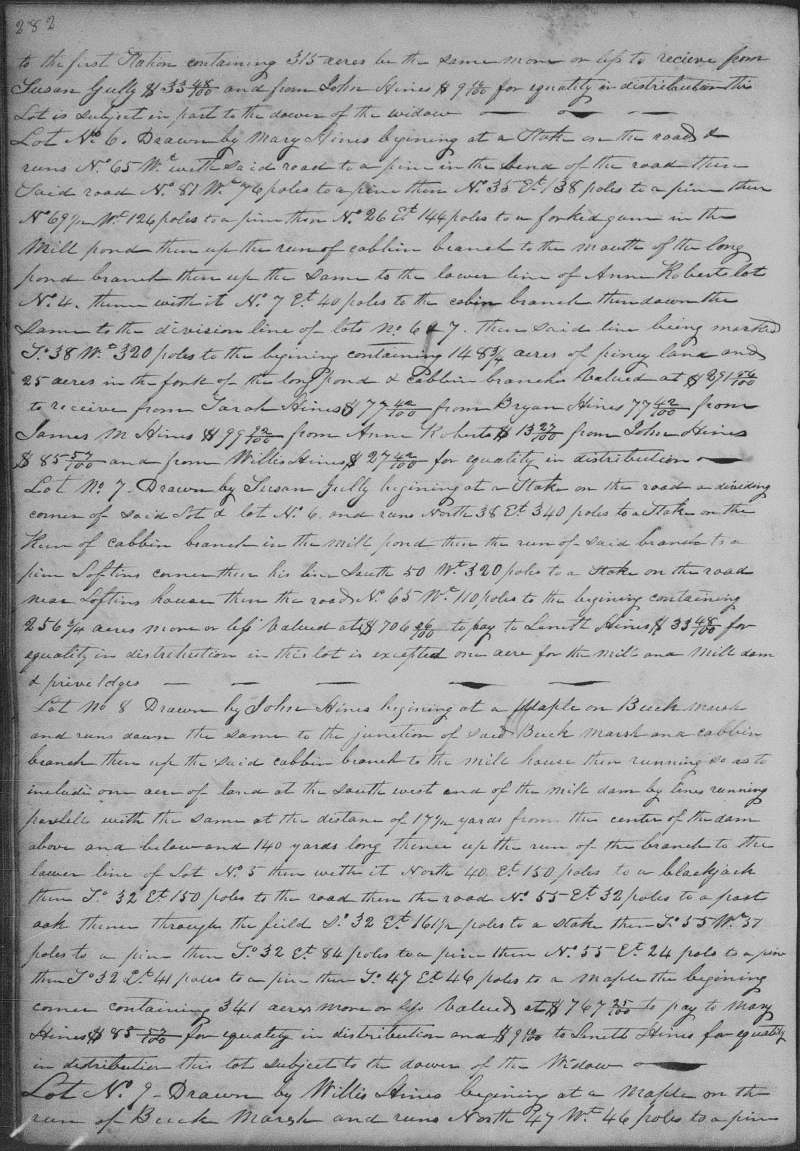 282
to the first Station containing 315 acres be the same more or less to recieve from
Susan Gully $33 48/100 and from John Hines $9 for equality in distribution this
Lot is subject in part to the dower of the widow
Lot No. 6. Drawn by Mary Hines begining at a Stake on the road &
runs No. 65 Wt. with said road to a pine in the bend of the road then
Said road No. 81 Wt. 76 poles to a pine then No. 35 Et. 138 poles to a pine then
No 69½ Wt. 126 poles to a pine then No. 26 Et. 144 poles to a forked gum in the
Mill pond then up the run of cabbin branch to the mouth of the long
pond branch then up the same to the lower line of Anne Roberts lot
No. 4. thence with it No. 7 Et. 40 poles to the cabin branch then down the
Same to the division line of lots No. 6 & 7. then said line being marked
So. 38 Wt. 320 poles to the begining containing 148 3/4 acres of piney land and
25 acres in the fork of the long pond & Cabbin branches Valued at $291
to receive from Sarah Hines $77 42/100 from Bryan Hines 77 42/100 from
James M Hines $99 from Anne Roberts $13 27/100 from John Hines
$85 57/100 and from Willis Hines $27 42/100 for equality in distribution
Lot No. 7. Drawn by Susan Gully begining at a Stake on the road a dividing
corner of said Lot & lot No. 6 and runs North 38 Et. 340 poles to a Stake on the
Run of cabbin branch in the mill pond then the run of said branch to a
pine Loftins corner then his line South 50 Wt. 320 poles to a Stake on the road
near Loftins house then the road No. 65 Wt. 110 poles to the begining containing
256 3/4 acres more or less Valued at $706 26/100 to pay to Lenett Hines $33 48/100 for
equality in distribution in this lot is excepted one acre for the mill and mill dam
& priveledges
Lot No 8 Drawn by John Hines begining at a Maple on Buck Marsh
and runs down the same to the junction of said Buck Marsh and cabbin
branch then up the said cabbin branch to the mill house then running so as to
include one acre of land at the south west end of the mill dam by lines running
with the same at the distance of 17½ yards from the center of the dam
above and below and 140 yards long thence up the run of the branch to the
lower line of Lot No. 5 then with it North 40 Et. 150 poles to a blackjack
then So. 32 Et. 150 poles to the road then the road No. 55 Et. 32 poles to a post
oak thence through the field So. 32 Et. 161½ poles to a stake then So. 55 Wt. 37
poles to a pine then So. 32 Et. 84 poles to a pine then No. 55 Et. 24 pols to a pine
then So. 32 Et. 41 poles to a pine then So. 47 Et. 46 poles to a maple the begining
corner containing 341 acres more or less Valued at $767 25/100 to pay to Mary
Hines $85 57/100 for equality in distribution and $9 to Lenett Hines for equality
in distribution this lot subject to the dower of the Widow
Lot No. 9. Drawn by Willis Hines begining at a Maple on the
run of Buck Marsh and runs North 47 Wt. 46 poles to a pine